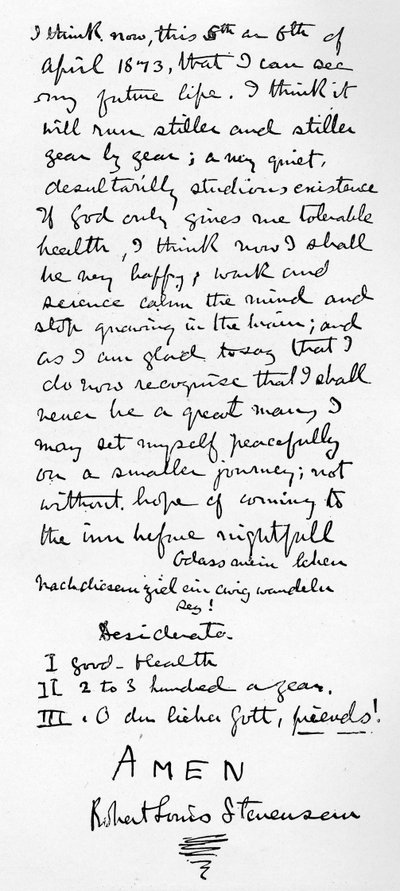 I think now, this 5th or 6th of
April 1873, that I can see
my future life. I think it
will run stiller and stiller
year by year; a very quiet,
desultorily studious existence
If God only gives me tolerable
health, I think now I shall
be very happy; work and
science calm the mind and
stop gnawing in the brain; and
as I am glad to say that I
do now recognise that I shall
never be a great man, I
may set myself peacefully
on a smaller journey; not
without hope of coming to
the inn before nightfall
O dass mein leben
nach diesem ziel ein ewig wandeln
sey!
Desiderata.
I good-Health
II 2 to 3 hundred a year.
III. O du lieber Gott, friends!
AMEN
Robert Louis Stevenson